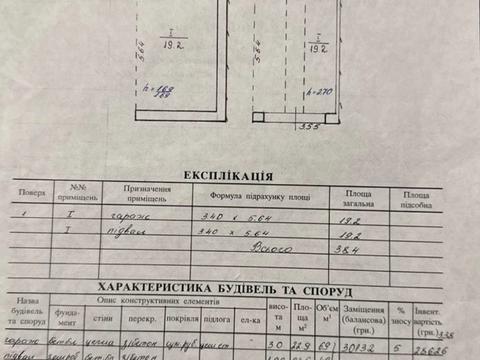 I
19.2
5.64
I
19.2
5.64
h=2.70
3.55
ЕКСПЛІКАЦІЯ
Поверх №№ приміщень Призначення приміщень Формула підрахунку площі Площа загальна Площа підсобна
1 I гараж 3.40 x 5.64 19.2
I підвал 3.40 x 5.64 19.2
Всього 38.4
ХАРАКТЕРИСТИКА БУДІВЕЛЬ ТА СПОРУД
Назва будівель та споруд Опис конструктивних елементів висота м Площа м² Об'єм м³ Заміщення (балансова) (грн.) % зносу Інвент. вартість (грн.)
фундамент стіни перекр. покрівля підлога ел-ка
гараж цегла з/бетон 3.0 22.9 69 3013.2 5
підвал